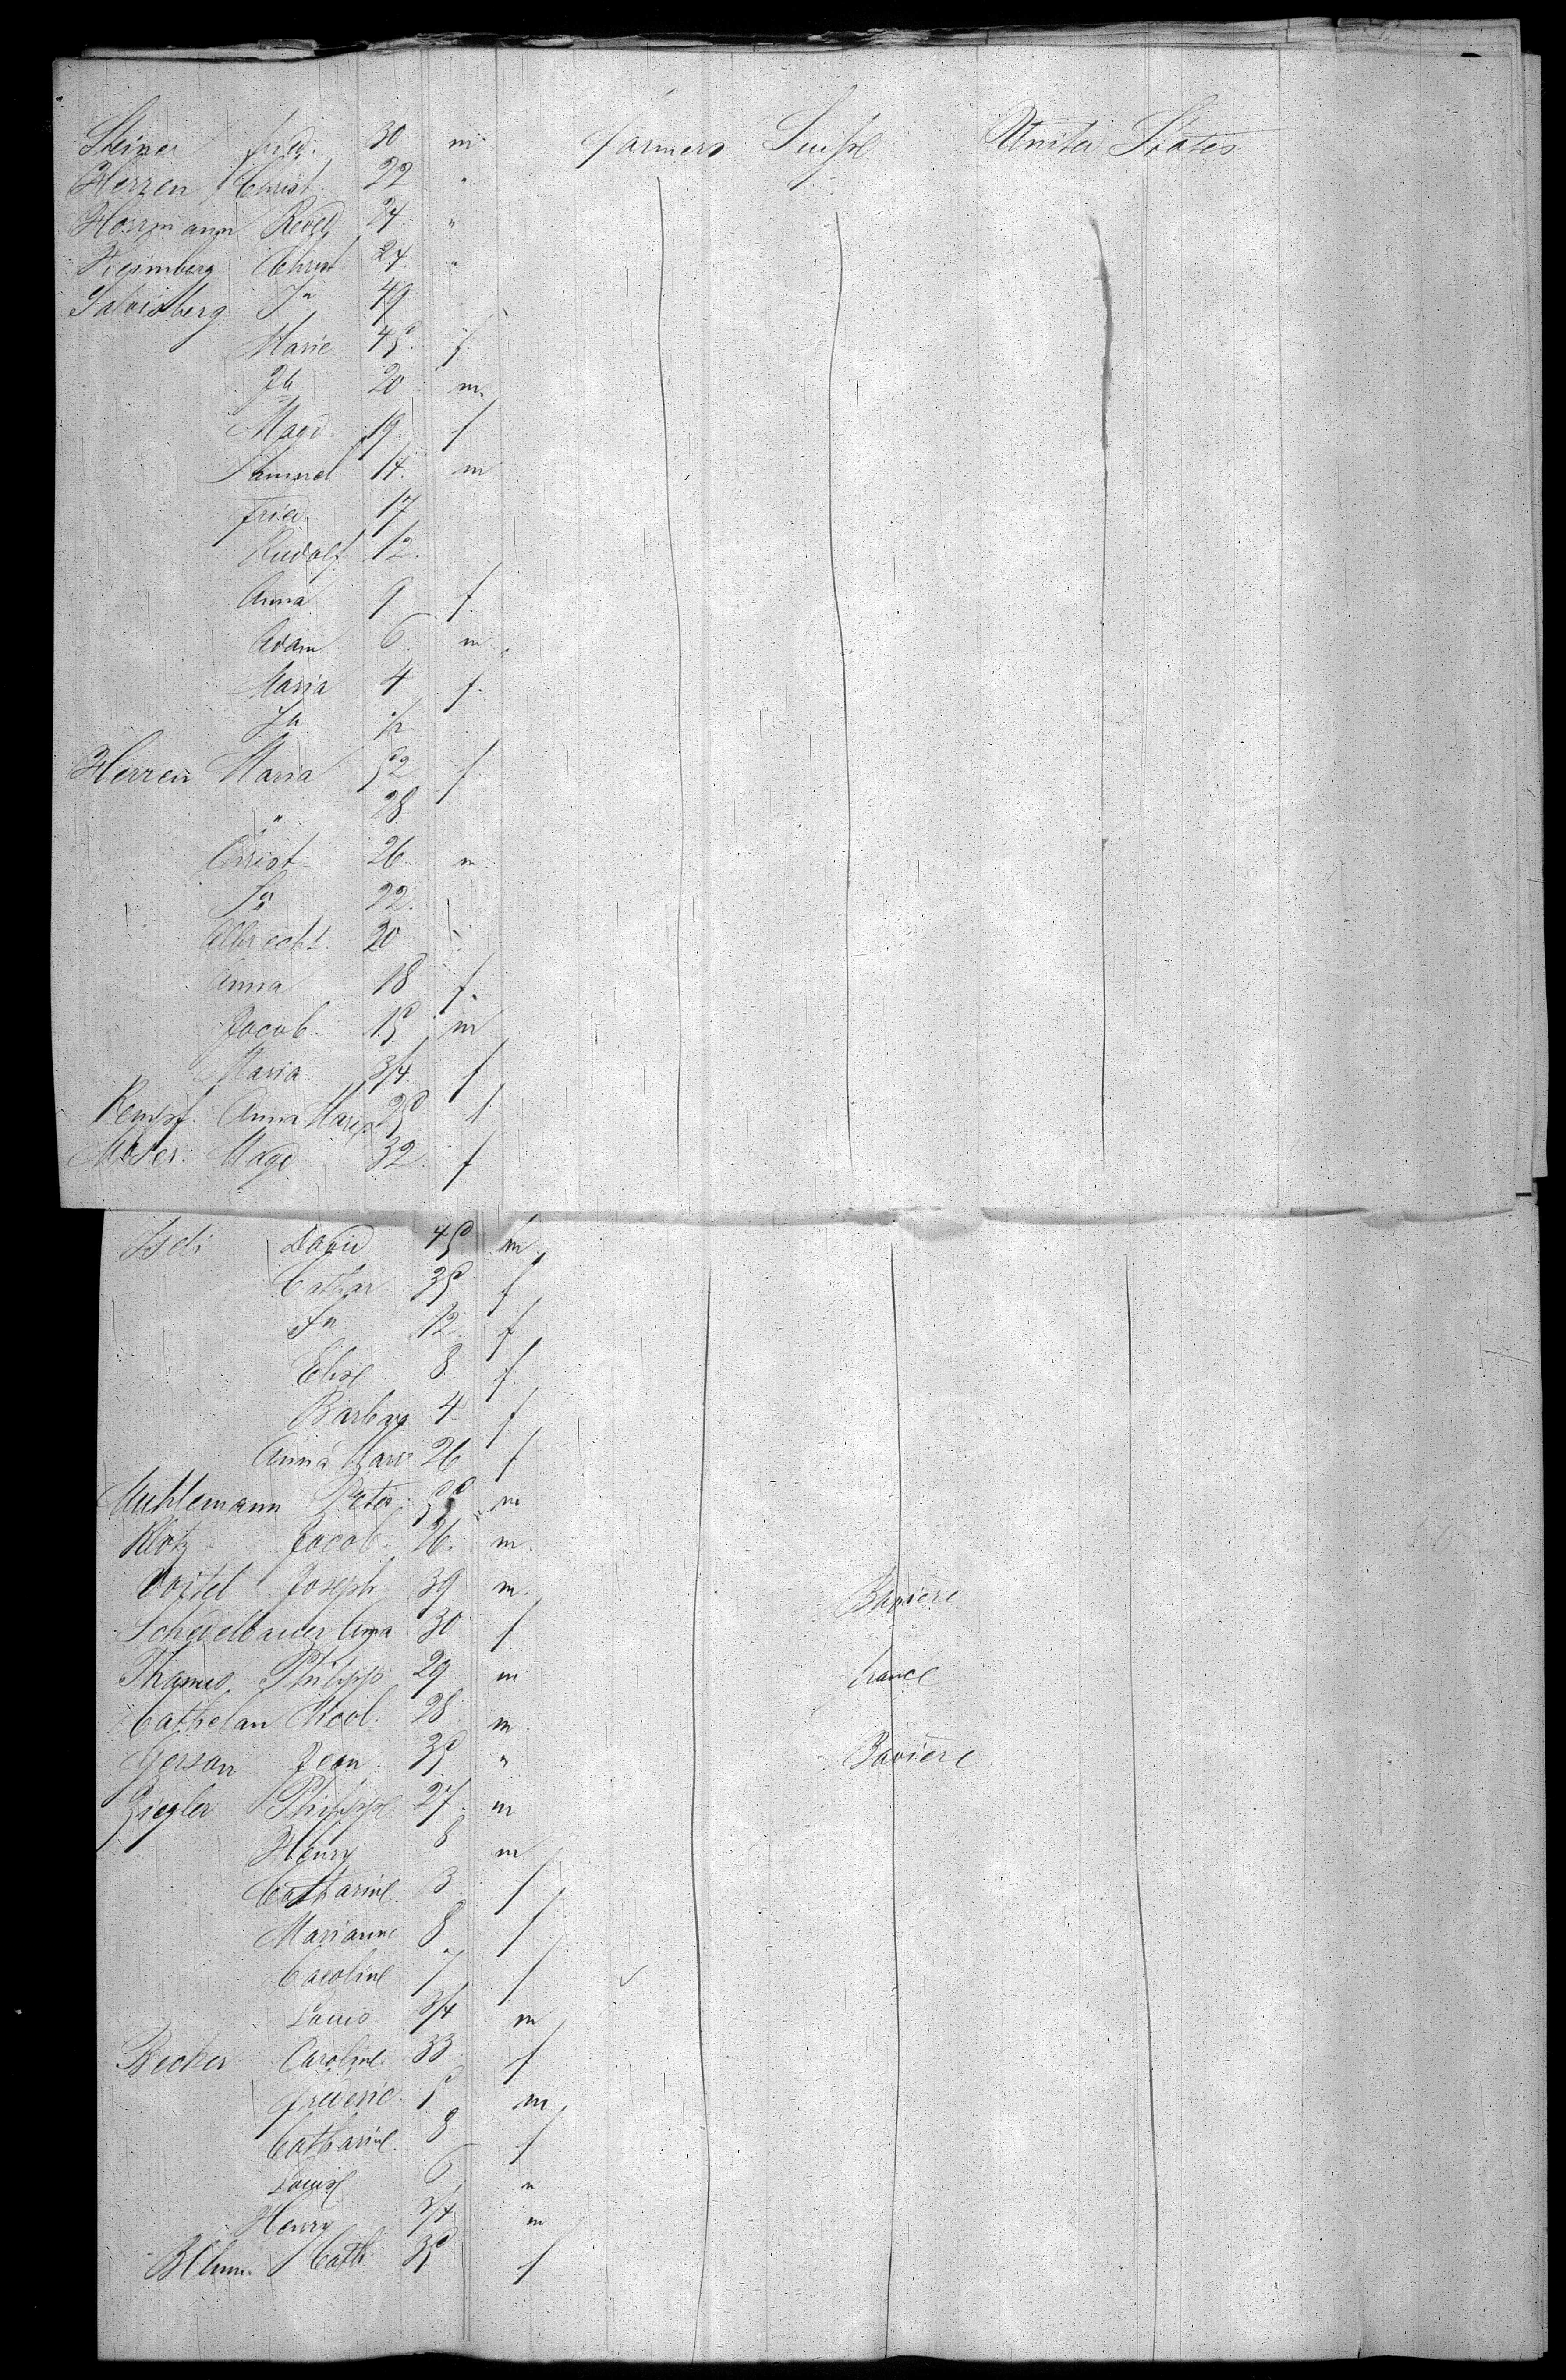 Steiner fried. 30 m farmers Suisse United States
Herren Christ 22 "
Herrmann 24 "
Christ 24 "
Salvisberg Jn 49
Marie 45 f
Jh 20 m
Magd. 19 f
Samuel 14 m
Fried. 17
Rudolf 12.
Anna 9 f.
Adam 6 m
Maria 4 f.
Jh 1/2
Herren Maria 52 f
" 28
Christ 26 m
22.
Albrecht 20
Anna 18 f.
Jacob. 15 m
Maria 3/4 f
Kempf. Anna Maria 25 f
Moser. Magd 32 f
Iseli David 45 m
Cathar 35 f
Jn 12 f
Elise 8 f
Barbara 4 f
Anna Mari 26 f
Muhlemann Peter m
Klotz Jacob. 26. m.
Joseph 39 m. Baviere
Scheidelbauer Anna 30 f
Thomas Philipp 29 m france
Cathelan Nicol. 28 m.
Gerson Jean 35 " Baviere
Ziegler Philippe 27 m
Henry 8 m
Catharine 3 f
Marianne 8 f
Caroline 7 f
Louis 3/4 m
Becker Caroline 33 f
frederic 5 m
Catharine 8 f
Louise 6 "
Henry 3/4 m
Blum. Cath 35 f